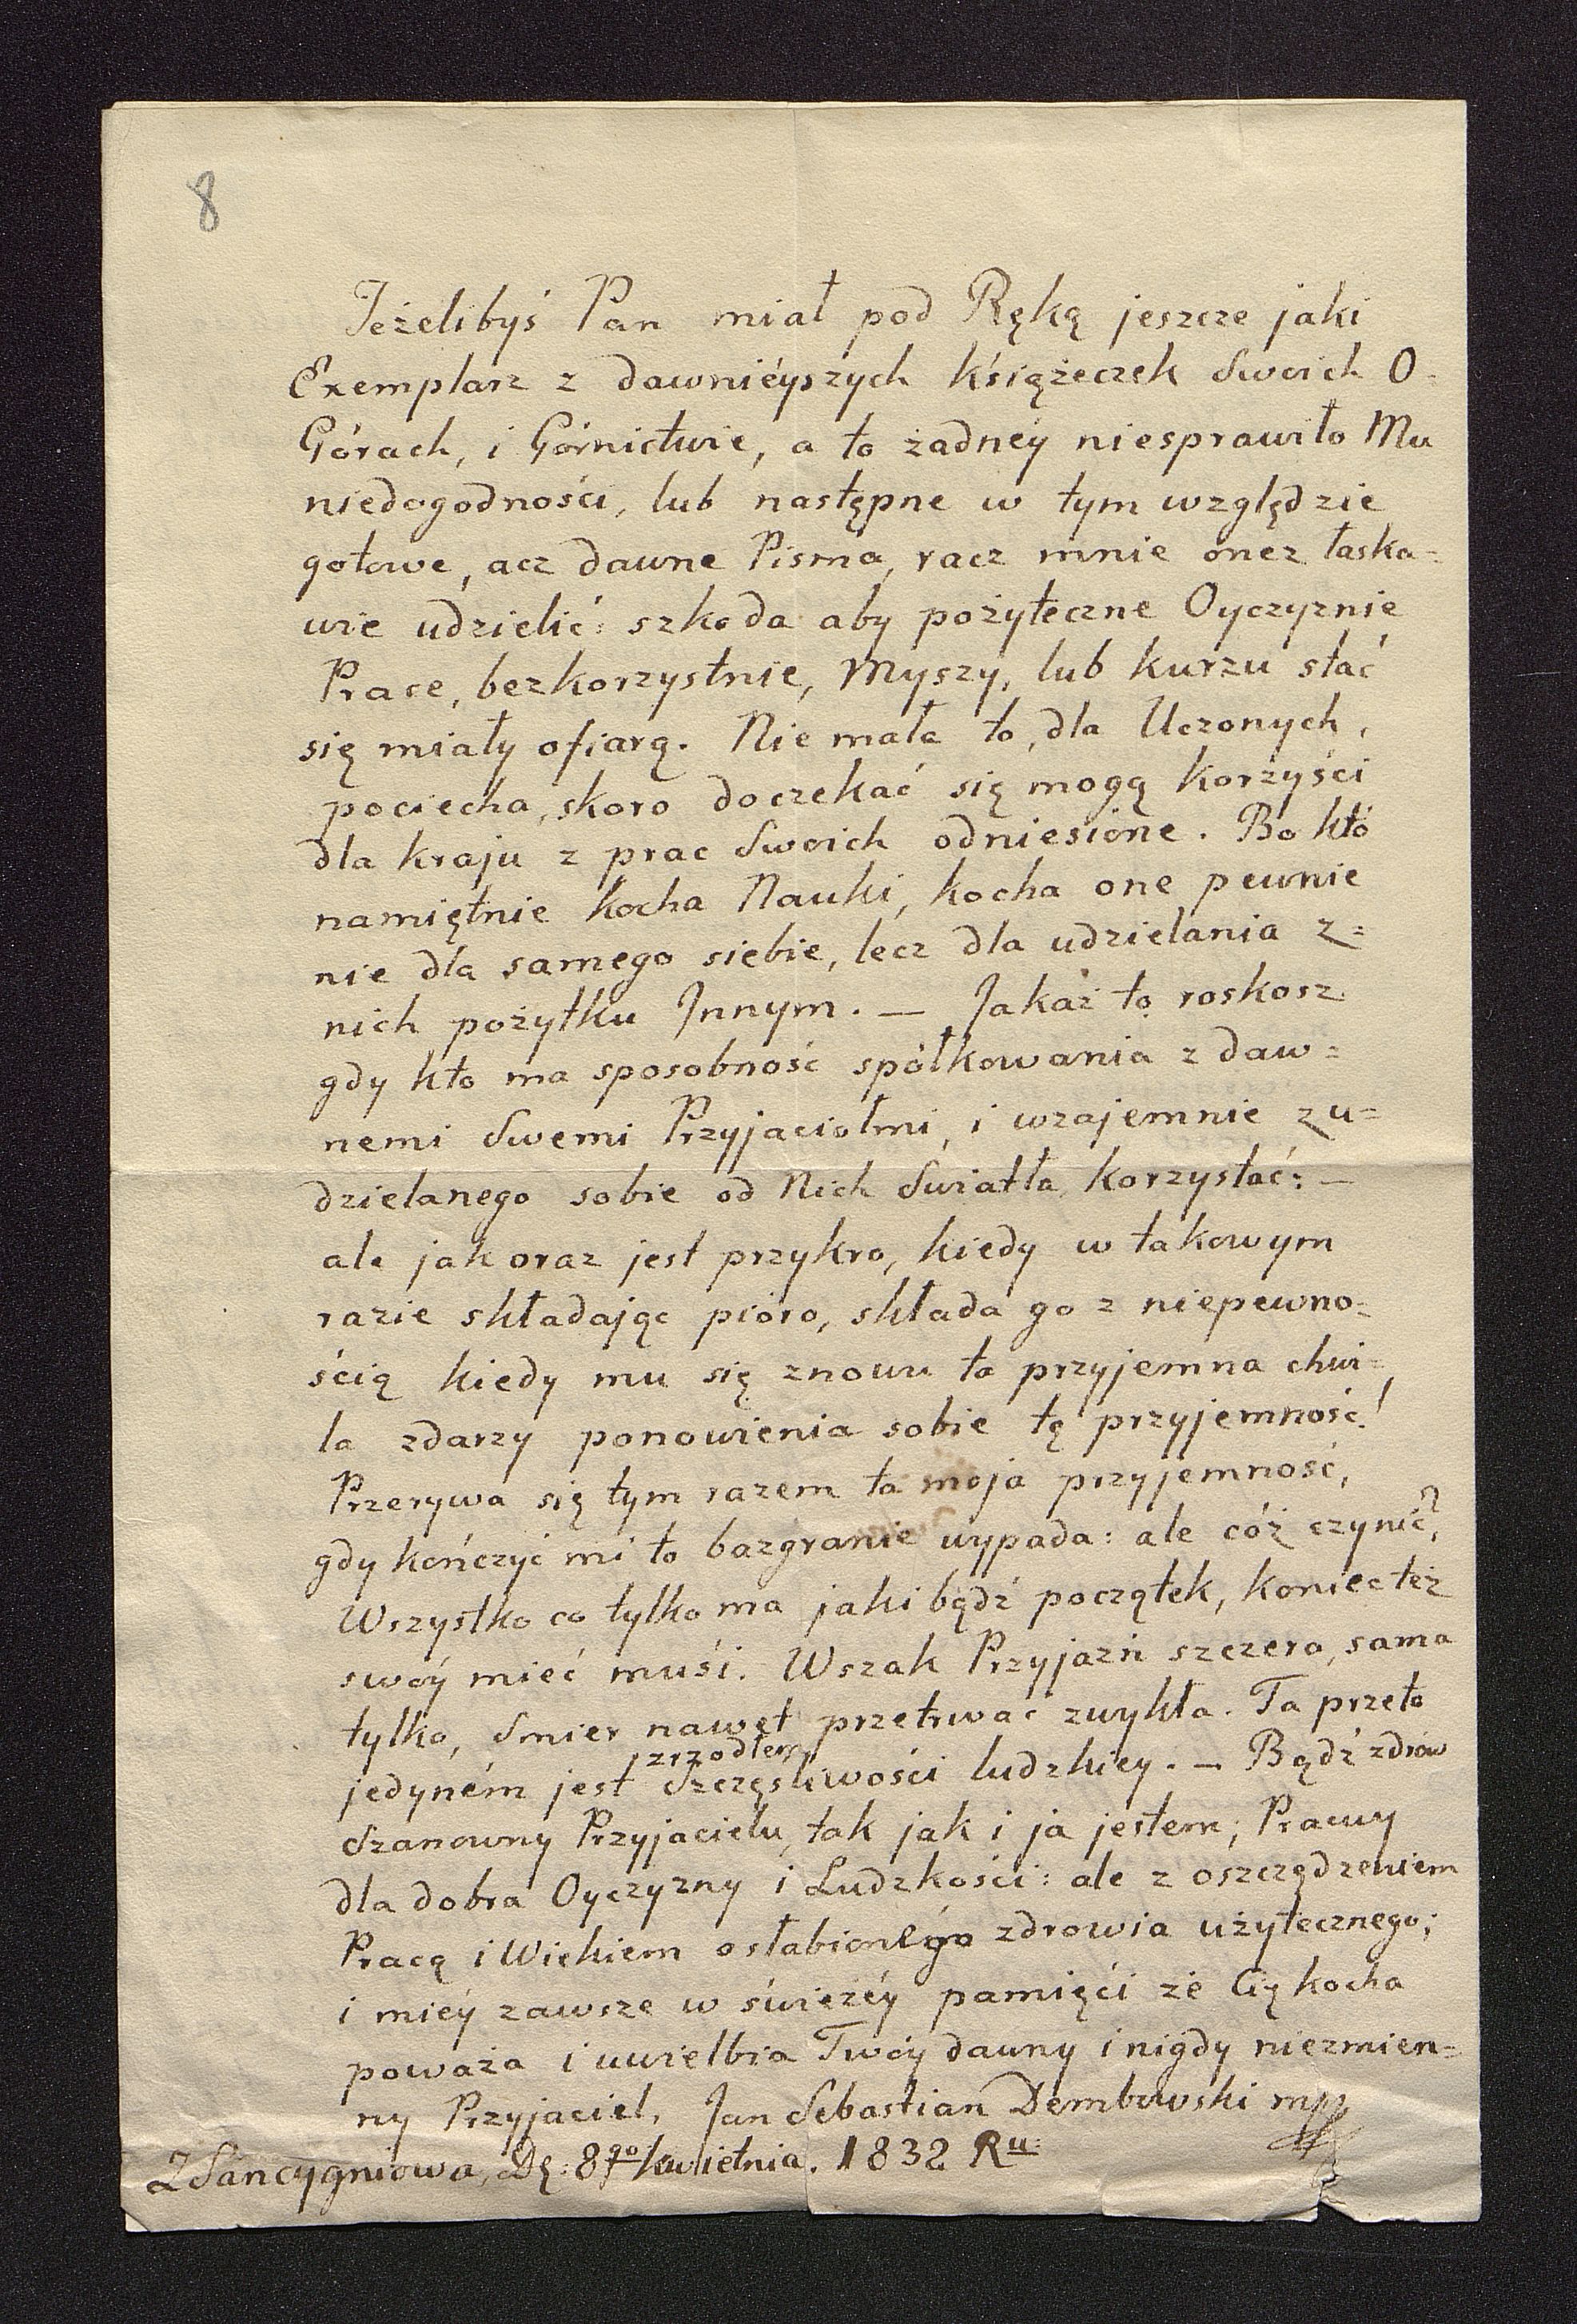 8
Jeżelibyś Pan miał pod Ręką jeszcze jaki
Exemplarz z dawniéyszych kśiążeczek Swoich O-
Górach, i Górnictwie, a to żadnéy niesprawiło Mu
niedogodności, lub następne w tym względzie
gotowe, acz dawne Pisma, racz mnie onez łaska=
wie udzielić: szkoda aby pożyteczne Oyczyznie
Prace, bezkorzystnie, Myszy, lub kurzu stać
się miały ofiarą. Nie mała to, dla Uczonych,
pociecha, skoro doczekać się mogą korzyści
dla kraju z prac Swoich odniesione. Bo któ
namiętnie kocha Nauki, kocha one pewnie
nie dla samego siebie, lecz dla udzielania z=
nich pożytku Innym. — Jakaż to roskosz
gdy kto ma sposobność spółkowania z daw=
nemi Swemi Przyjaciołmi, i wzajemnie zu=
dzielanego sobie od Nich Swiatła, korzystać: —
ale jak oraz jest przykro, kiedy w takowym
razie składając pióro, składa go z niepewno=
ścią kiedy mu się znowu ta przyjemna chwi=
la zdarzy ponowienia sobie tę przyjemność!
Przerywa się tym razem ta moja przyjemność,
gdy kończyć mi to bazgranie wypada: ale cóż czynić?
Wszystko co tylko ma jaki bądź początek, koniec też
swóy mieć muśi. Wszak Przyjaźń szczera, sama
tylko, Smier nawet przetrwać zwykła. Ta przeto
zrzodłem
jedyném jest Szczęsliwości ludzkiey. — Bądź zdrów
Szanowny Przyjacielu, tak jak i ja jestem; Pracuy
dla dobra Oyczyzny i Ludzkości: ale z oszczędzeniem
Pracą i Wiekiem osłabionégo zdrowia użytecznego;
i miéy zawsze w świeżéy pamięći że Cię kocha
poważa i uwielbia Twóy dawny i nigdy niezmien=
ny Przyjaciel, Jan Sebastian Dembowski mpp
Z Sancygniowa, Dę: 8go kwietnia. 1832 Ru: